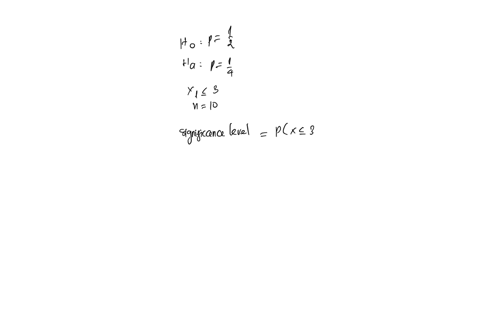 H₀: p = 1/2
Ha: p = 1/4
x₁ ≤ 3
n = 10
significance level = P(x ≤ 3